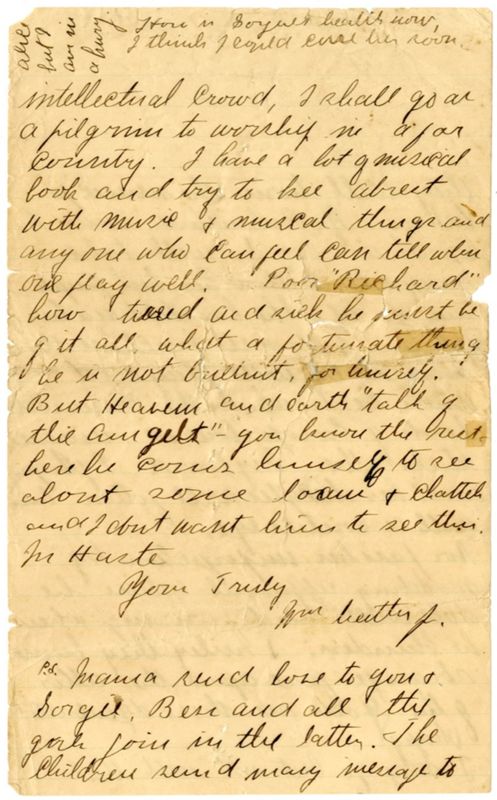 How is Sorgie's health now,
I think I could cure her soon.
but I
am in
a hurry.
intellectual crowd, I shall go as
a pilgrim to worship in a far
country. I have a lot of musical
book and try to kee abrest
with music & musical things and
any one who can feel can tell when
one play well. Poor "Richard"
how tired and sick he must be
of it all what a fortunate thing
he is not brilliant, for himself.
But Heavens and earth "talk of
the Angels" - you know the rest
here he coms himself to see
about some loan & chattels
and I dont want him to see this.
In Haste
Your Truly
Wm
P.S. Mama send love to you &
Sorgie, Bess and all the
join in the latter. The
Children send many message to